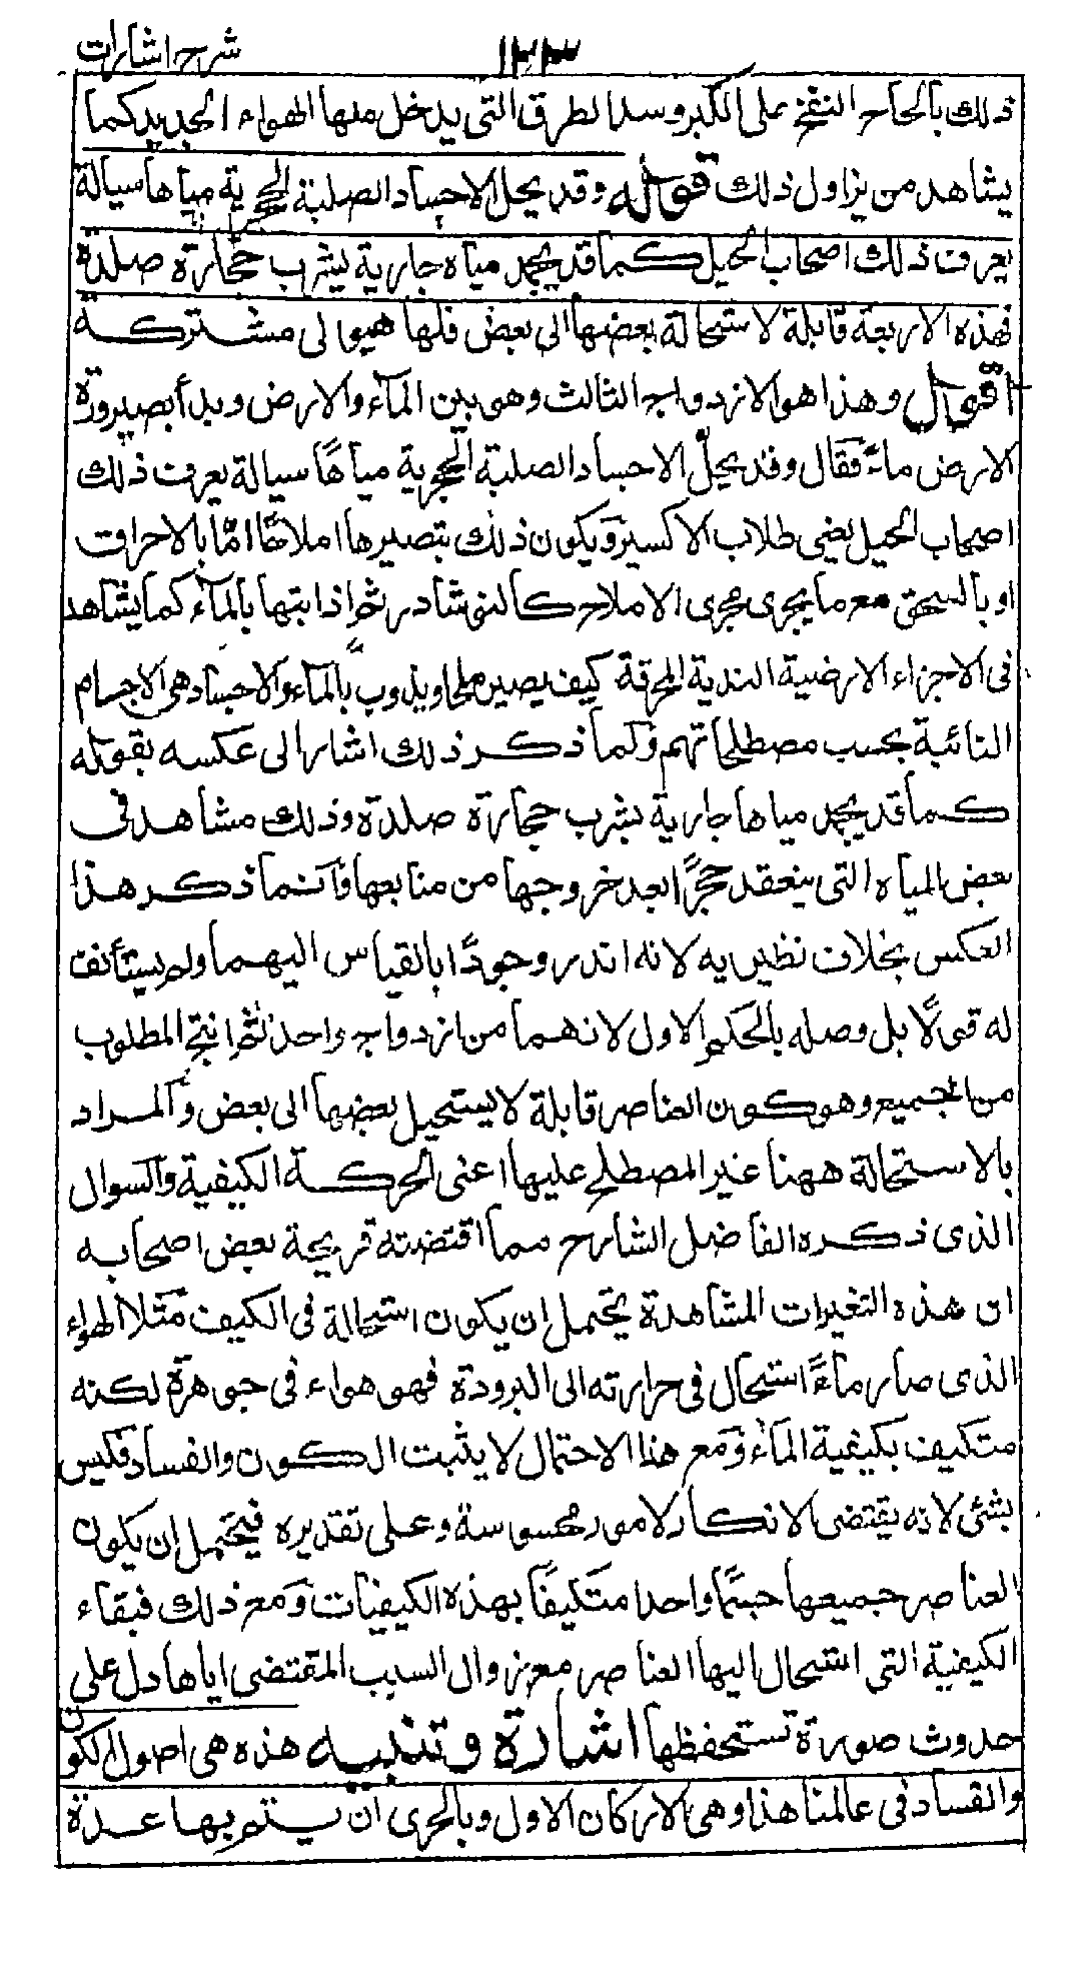 شرح اشارات
١٢٣
ذلك بالحاح النفخ على الكير وسد الطرق التى يدخل منها الهواء الجديد كما
يشاهد من يزاول ذلك قوله وقد يحل الاجساد الصلبة الحجرية مياها سيالة
يعرف ذلك اصحاب الحيل كما قد يجمد مياه جارية يشرب حجارة صلدة
فهذه الاربعة قابلة لاستحالة بعضها الى بعض فلها هيولى مشتركة
اقول وهذا هو الازدواج الثالث وهو بين الماء والارض وبدأ بصيرورة
الارض ماءً فقال وقد يحلّ الاجساد الصلبة الحجرية مياهًا سيالة يعرف ذلك
اصحاب الحيل يعنى طلاب الاكسير ويكون ذلك بتصييرها املاحًا امّا بالاحراق
او بالسحق مع ما يجرى مجرى الاملاح كالنوشادر ثم اذابتها بالماء كما يشاهد
فى الاجزاء الارضية الندية المحرقة كيف يصير ملحا ويذوب بالماء والاجساد هى الاجسام
الذائبة بحسب مصطلحاتهم ولما ذكر ذلك اشار الى عكسه بقوله
كما قد يجمد مياها جارية يشرب حجارة صلدة وذلك مشاهد فى
بعض المياه التى ينعقد حجرًا بعد خروجها من منابعها وانما ذكر هذا
العكس بخلاف نظيريه لانه اندر وجودًا بالقياس اليهما ولم يستأنف
له قولًا بل وصله بالحكم الاول لانهما من ازدواج واحد ثم انتج المطلوب
من الجميع وهو كون العناصر قابلة لا يستحيل بعضها الى بعض والمراد
بالاستحالة ههنا غير المصطلح عليها اعنى الحركة الكيفية والسوال
الذى ذكره الفاضل الشارح مما اقتضته قريحة بعض اصحابه
ان هذه التغيرات المشاهدة يحتمل ان يكون استحالة فى الكيف مثلا الهواء
الذى صار ماءً استحال فى حرارته الى البرودة فهو هواء فى جوهرة لكنه
متكيف بكيفية الماء ومع هذا الاحتمال لا يثبت الكون والفساد فليس
بشئ لانه يقتضى الانكار لامور محسوسة وعلى تقديره فيحتمل ان يكون
العناصر جميعها جسمًا واحدا متكيفًا بهذه الكيفيات ومع ذلك فبقاء
الكيفية التى استحال اليها العناصر مع زوال السبب المقتضى اياها دل على
حدوث صورة تستحفظها اشارة وتنبيه هذه هى اصول الكون
والفساد فى عالمنا هذا وهى الاركان الاول وبالحرى ان يتم بها عدة